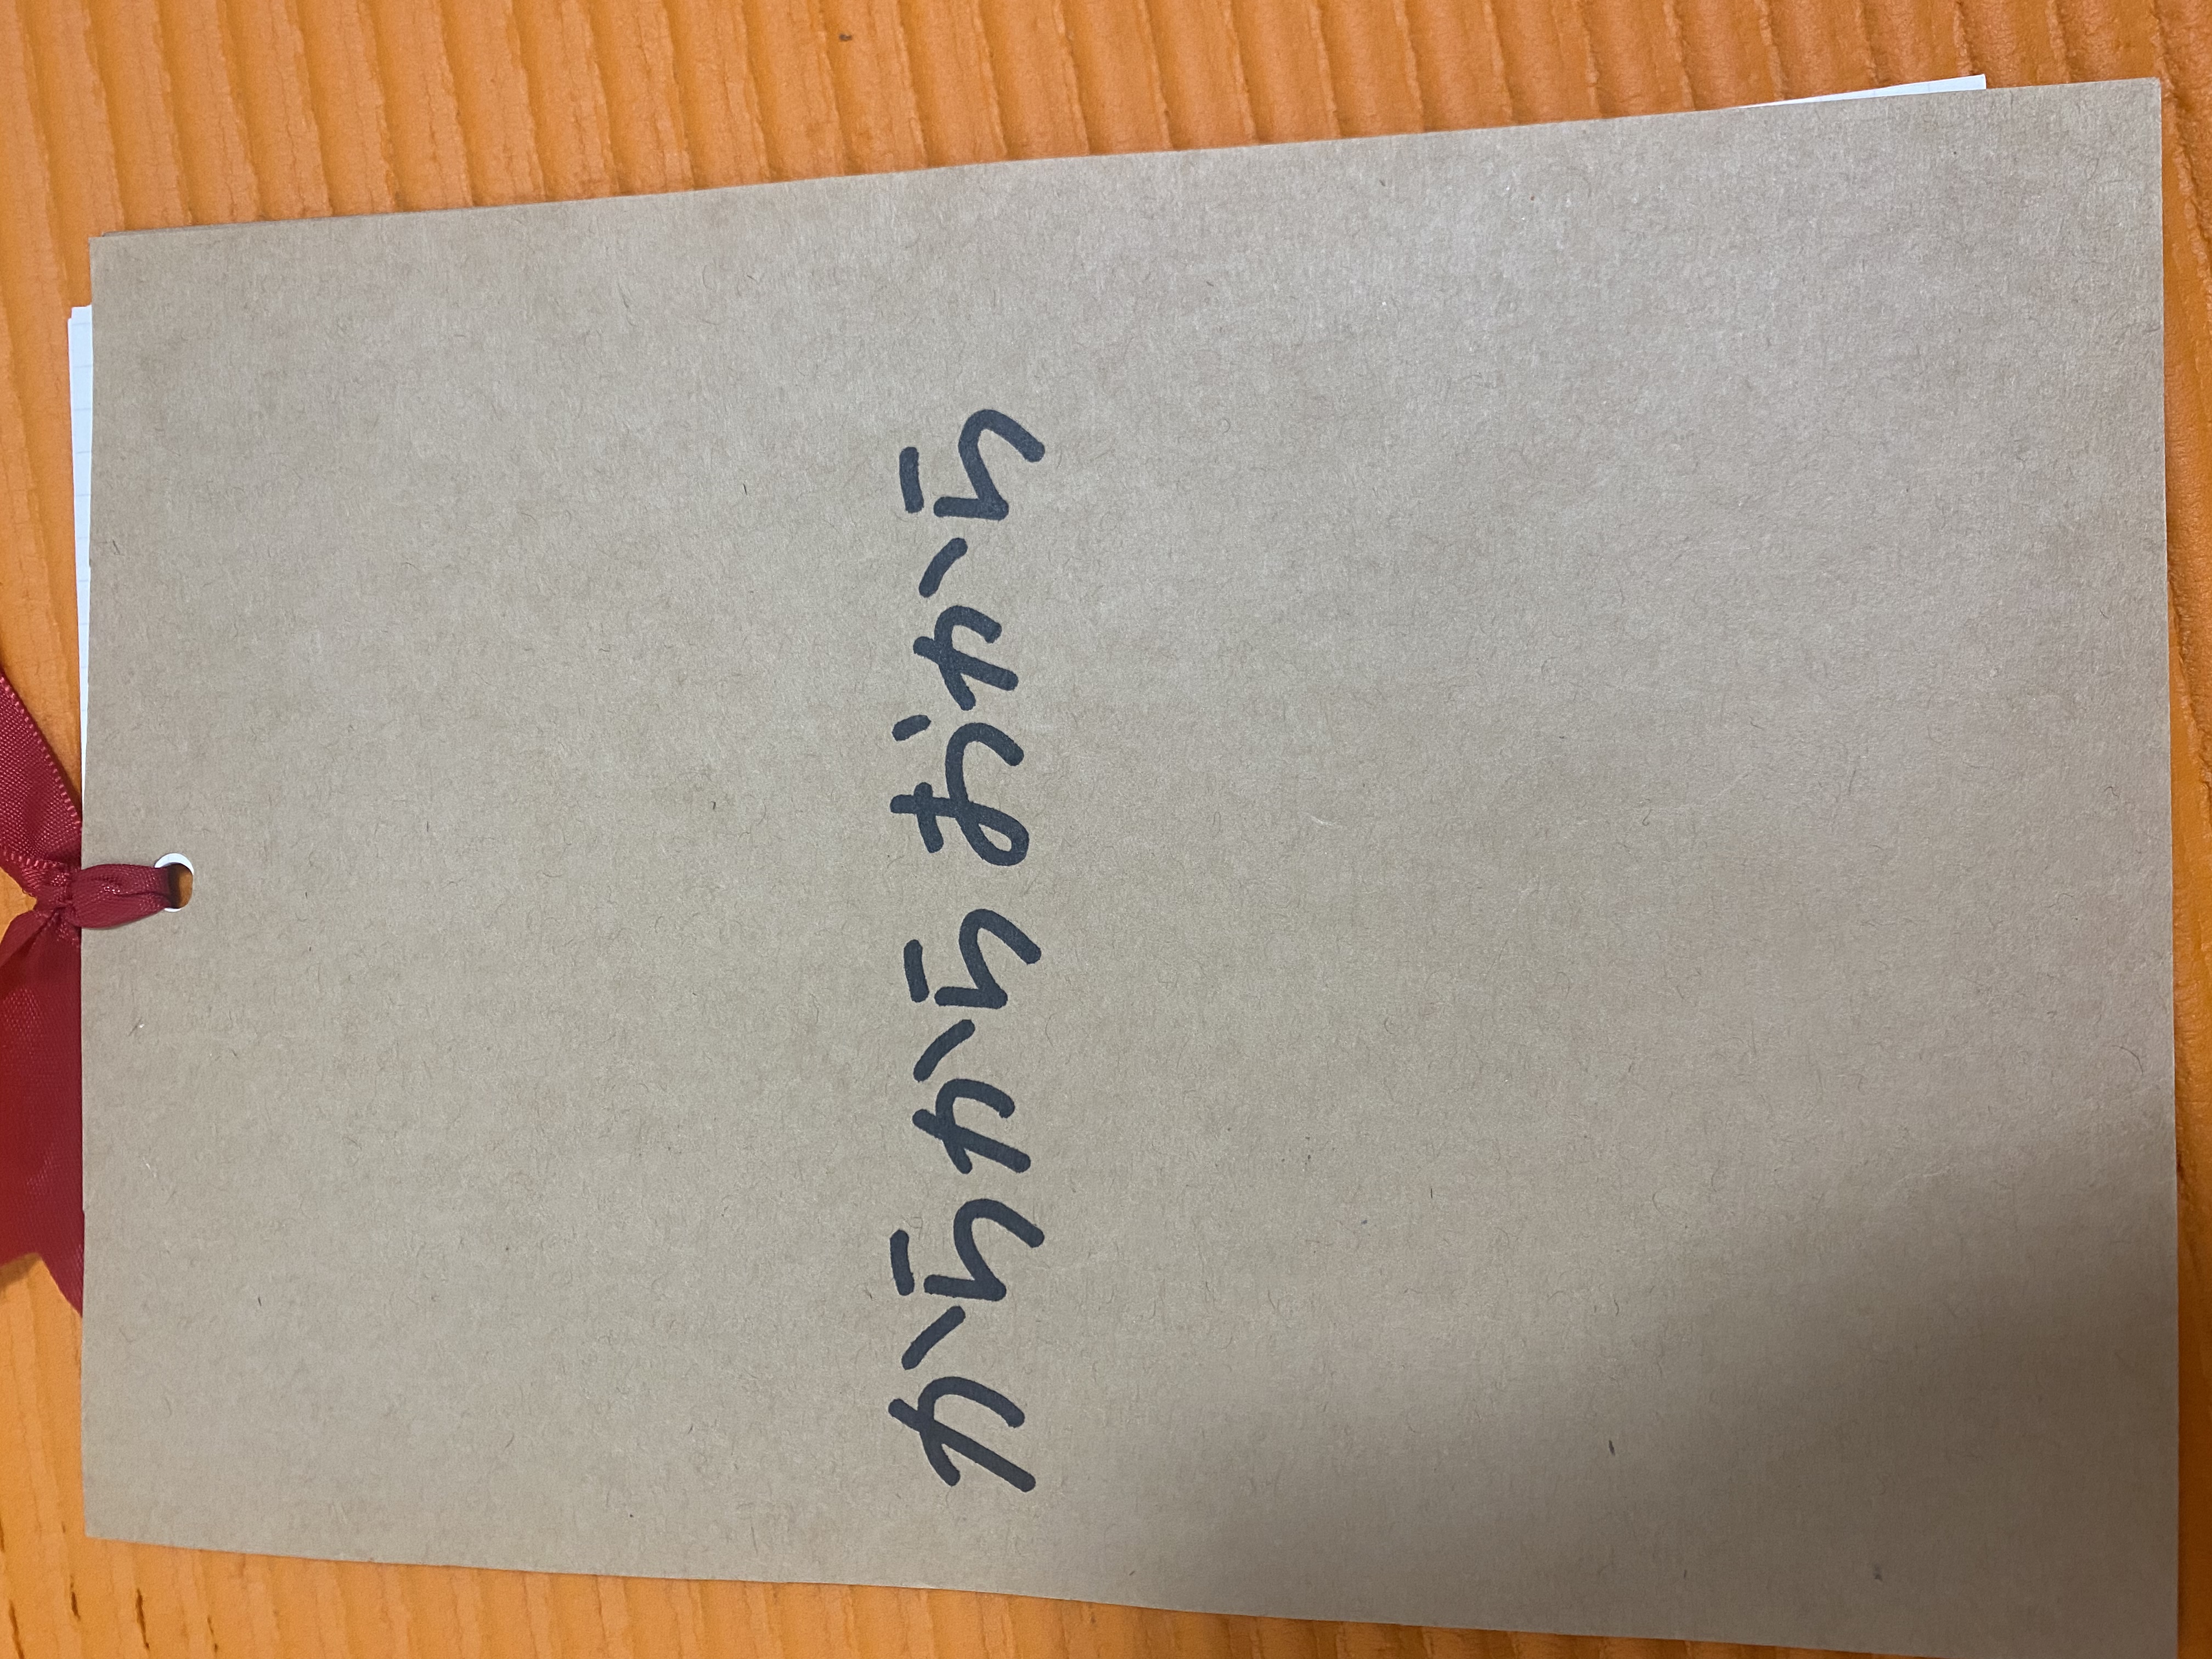 からから おから